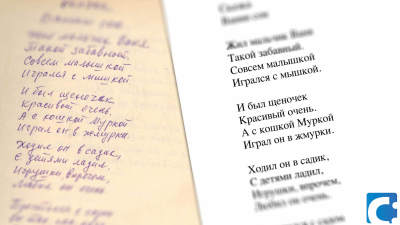 Жил мальчик Ваня
Такой забавный.
Совсем малышкой
Игрался с мишкой.
И был щеночек
Красивый очень,
А с кошкой Муркой
Играл он в жмурки.
Ходил он в садик,
С детями ладил,
Игрушки впрочем,
Любил он очень
Сказка
Ванин сон
Жил мальчик Ваня
Такой забавный.
Совсем малышкой
Игрался с мышкой.
И был щеночек
Красивый очень.
А с кошкой Муркой
Играл он в жмурки.
Ходил он в садик,
С детями ладил,
Игрушки, впрочем,
Любил он очень.